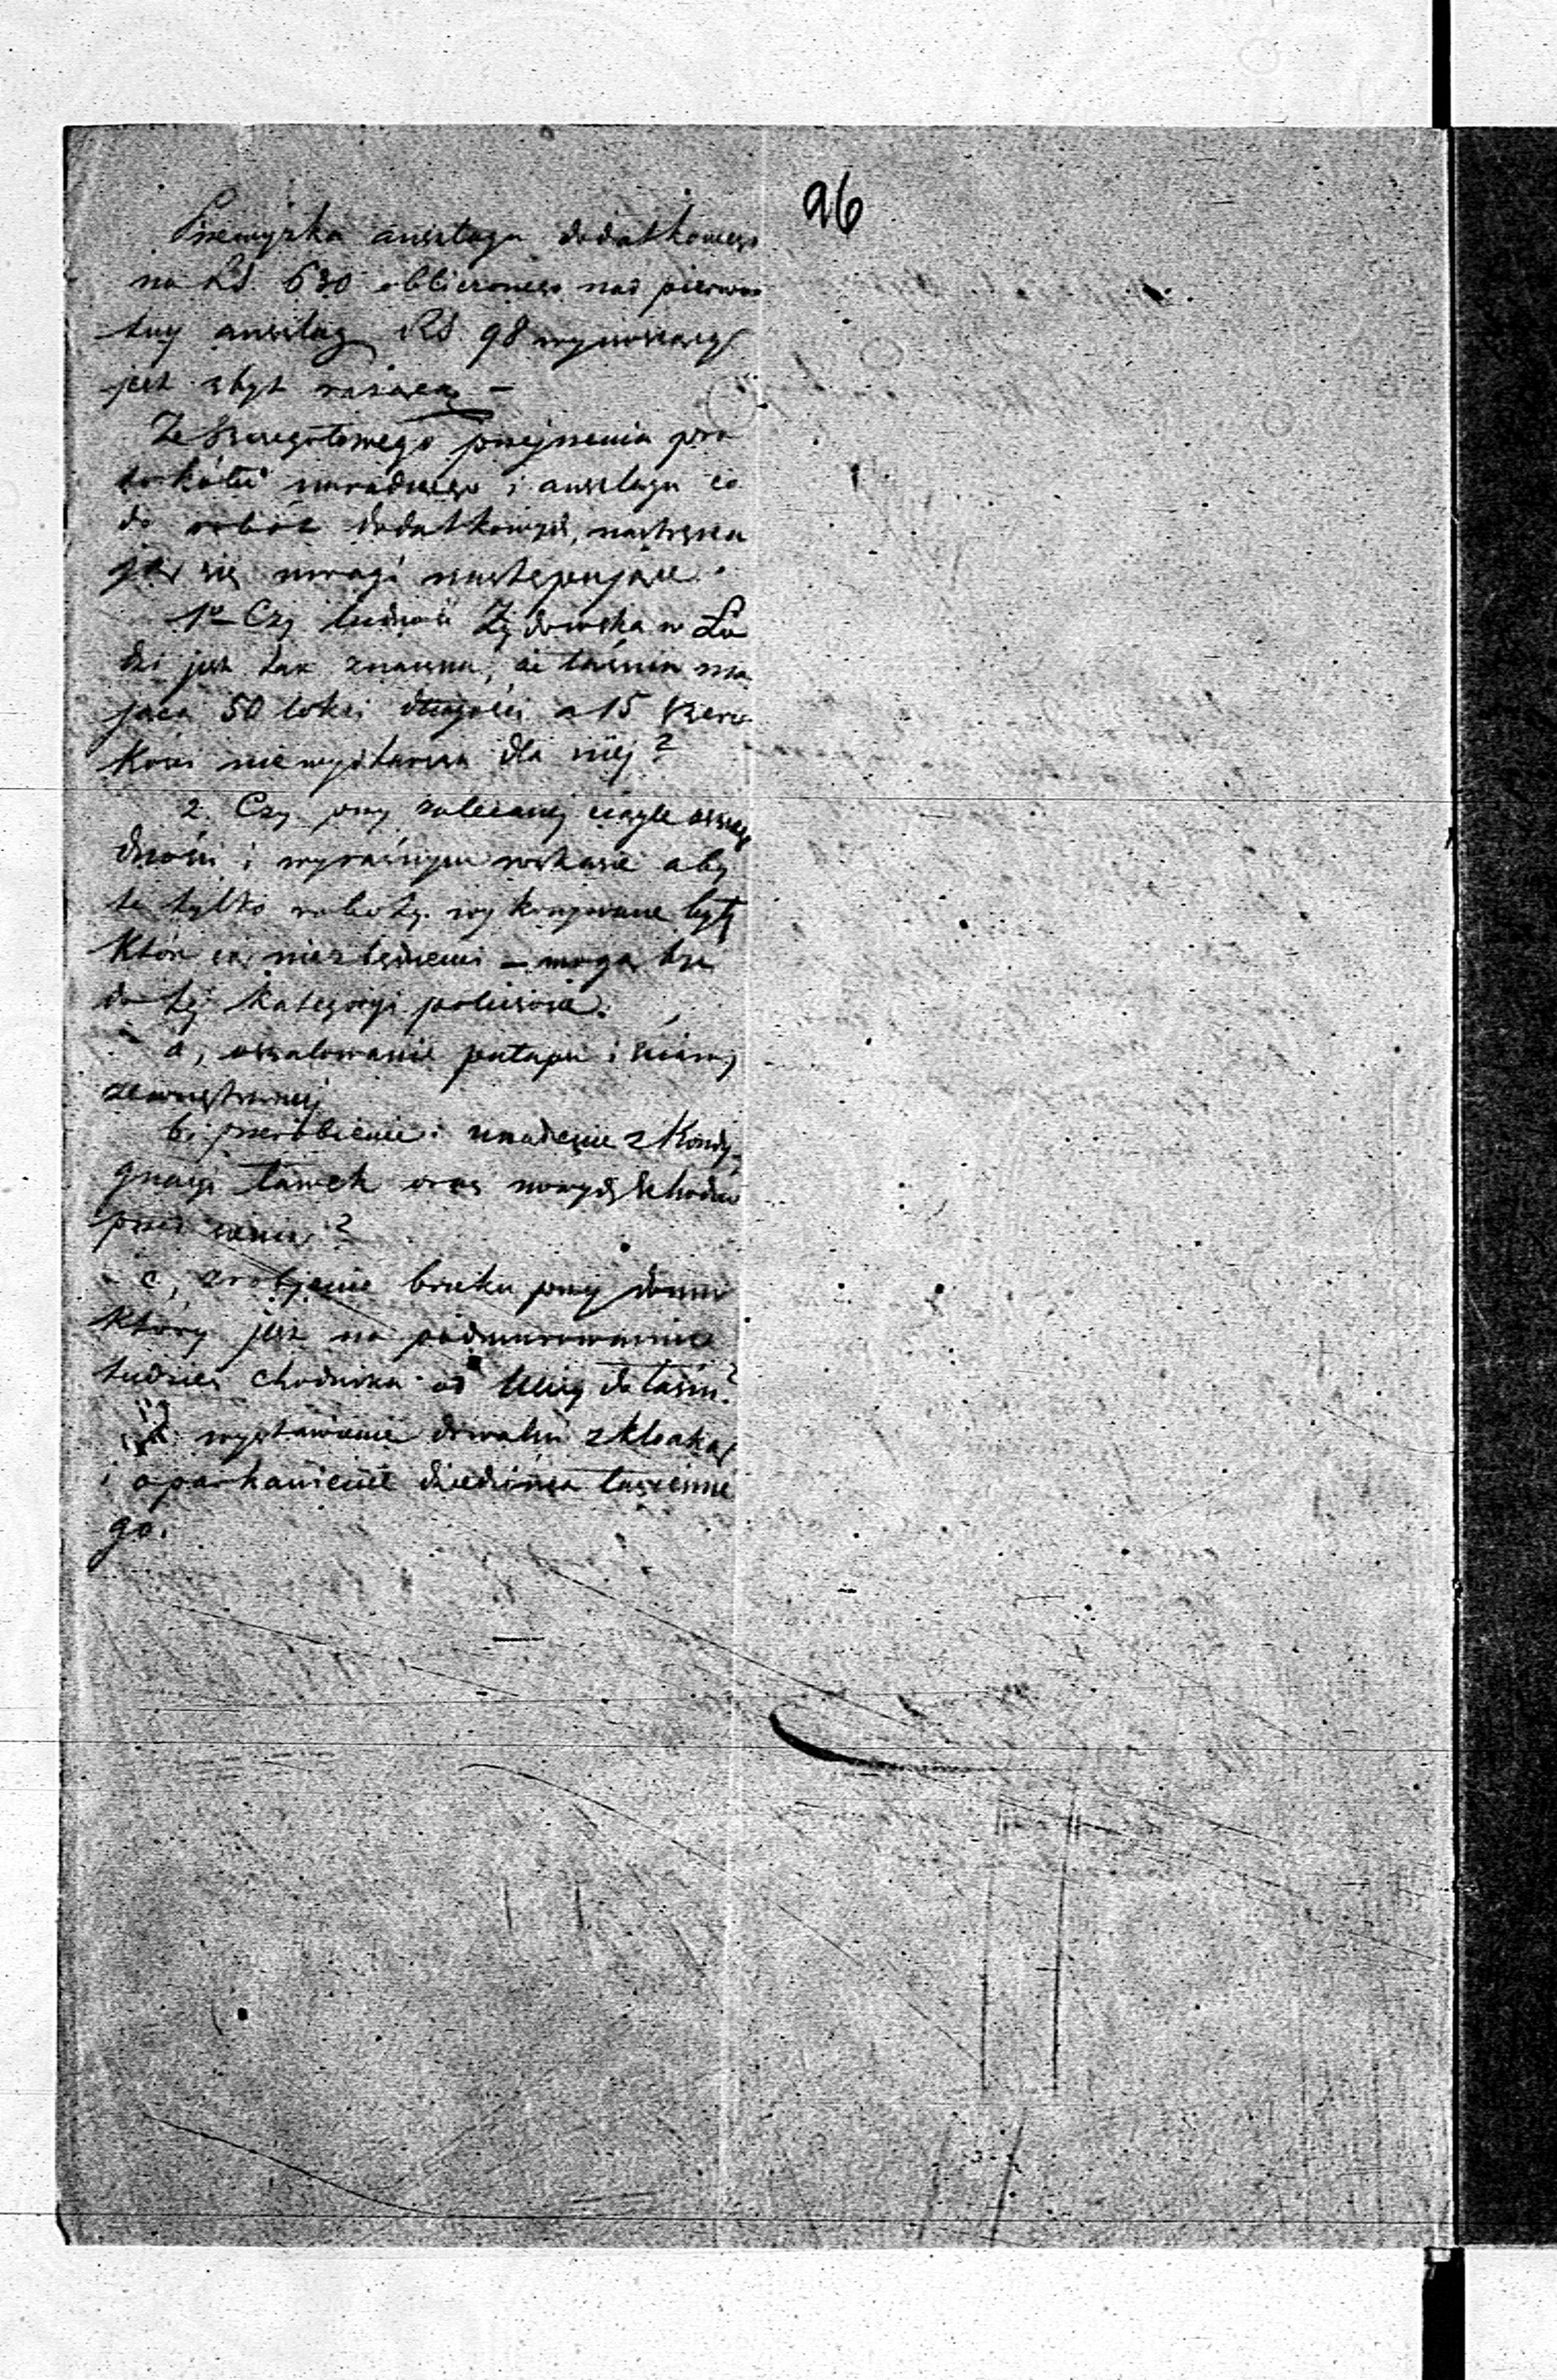 96
Przewyżka anszlagu dodatkowego
na RS. 630 obliczonego nad pierwo
tny anszlag RS. 98 wynoszący
jest zbyt rażącą —
Ze szczegółowego przejrzenia pro
tokółu i anszlagu co
do robót dodatkowych, nastręcza
ją się uwagi następujące.
1o Czy ludność Żydowska w Ło
dzi jest tak znaczna, że łaźnia ma
jąca 50 łokci długości a 15 szero
kości niewystarcza dla niéj?
2. Czy przy zalecanéj ciągle oszczę
dności i wyraźnym wskazie aby
te tylko roboty wykonywane były
które są niezbędnemi — mogą być
do téj kategoryi policzone.
a, oszalowanie pułapu i ściany
zewnętrznéj
b, przerobienie i urządzenie z kondy-
gnacyi ławek oraz nowych schodów
przed ?
c, zrobienie bruku przy domu
który jest na podmurowaniu
tudzież chodnika od ulicy do łaźni?
wystawienie drwalni z kloaką
i oparkanienie dziedzińca łaziennę
go.